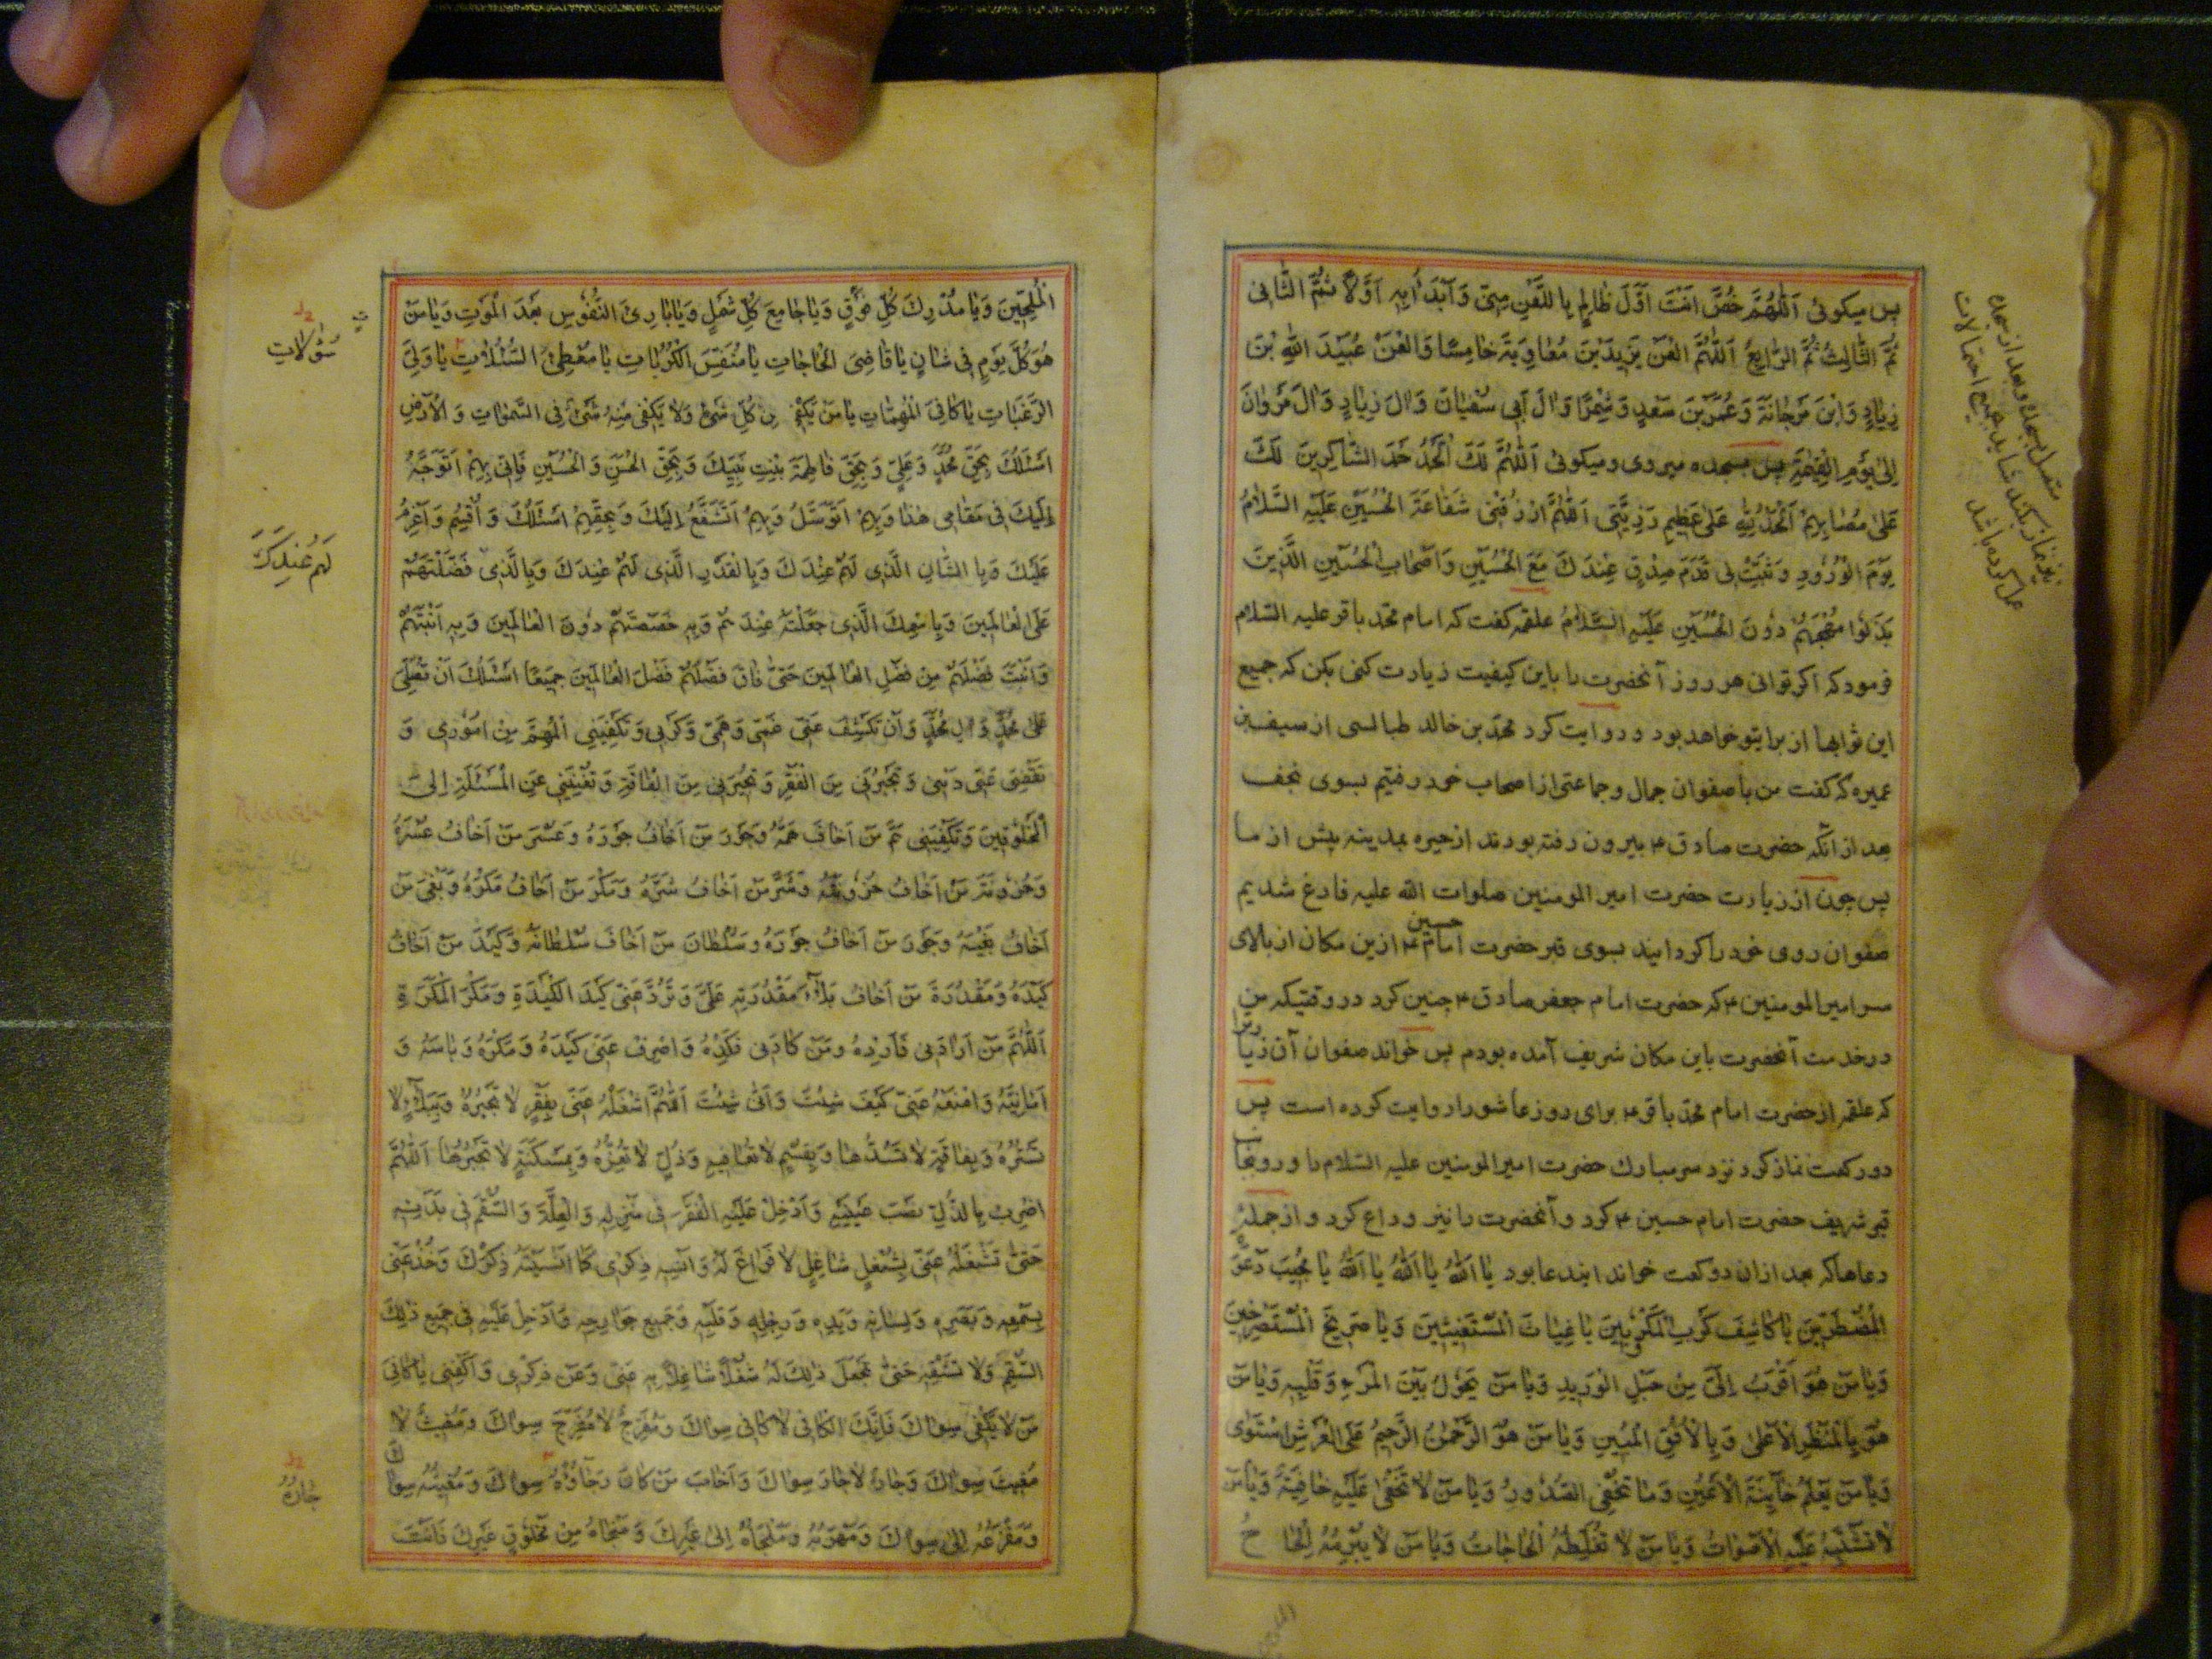 پس میکوئی اَللّٰهُمَّ خُصَّ اَنْتَ اَوَّلَ ظَالِمٍ بِاللَّعْنِ مِنّی وَ اَبْدَأ بِهِ اَوَّلًا ثُمَّ الثَّانِی
ثُمَّ الثَّالِثُ ثُمَّ الرّابِعُ اَللّٰهُمَّ الْعَنْ یَزِیدَ بْنَ مُعَاوِیَةَ خَامِسًا وَ الْعَنْ عُبَیْدَ اللّٰهِ بْنَ
زِیَادٍ وَ ابْنَ مَرْجَانَةَ وَ عُمَرَ بْنَ سَعْدٍ وَ شِمْرًا وَ الَ اَبِی سُفْیَانَ وَ الَ زِیَادٍ وَ الَ مَرْوَانَ
اِلیٰ یَوْمِ الْقِیٰمَةِ پس بسجده میروی و میکوئی اَللّٰهُمَّ لَكَ الْحَمْدُ حَمْدَ الشَّاکِرِینَ لَكَ
عَلیٰ مُصَابِهِمْ اَلْحَمْدُ لِلّٰهِ عَلیٰ عَظِیمِ رَزِیَّتِی اَللّٰهُمَّ ارْزُقْنِی شَفَاعَةَ الْحُسَیْنِ عَلَیْهِ السَّلَامُ
یَوْمَ الْوُرُودِ وَ ثَبِّتْ لِی قَدَمَ صِدْقٍ عِنْدَكَ مَعَ الْحُسَیْنِ وَ اَصْحَابِ الْحُسَیْنِ الَّذِینَ
بَذَلُوا مُهَجَهُمْ دُونَ الْحُسَیْنِ عَلَیْهِ السَّلَامُ علقمه کفت که امام محمّد باقر علیه السّلام
فرمود که اکر توانی هر روز آنحضرت را باین کیفیت زیارت کنی بکن که جمیع
این ثوابها از برایتو خواهد بود و روایت کرد محمّد بن خالد طیالسی از سیف بن
عمیره که کفت من با صفوان جمال و جماعتی از اصحاب خود رفتیم بسوی نجف
بعد از آنکه حضرت صادق ع بیرون رفته بودند از حیره بمدینه پیش از ما
پس چون از زیارت حضرت امیر المومنین صلوات اللّه علیه فارغ شدیم
صفوان روی خود را کردانید بسوی قبر حضرت امام حسین ع ازین مکان از بالای
سر امیر المومنین ع که حضرت امام جعفر صادق ع چنین کرد در وقتیکه من
در خدمت آنحضرت باین مکان شریف آمده بودم پس خواند صفوان آن زیارترا
که علقمه از حضرت امام محمّد باقر ع برای روز عاشورا روایت کرده است پس
دو رکعت نماز کرد نزد سر مبارك حضرت امیر المومنین علیه السّلام را و رو بجانب
قبر شریف حضرت امام حسین ع کرد و آنحضرت را نیز وداع کرد و از جمله
دعاها که بعد ازان دو رکعت خواند ایندعا بود یَا اَللّٰهُ یَا اَللّٰهُ یَا اَللّٰهُ یَا مُجِیبَ دَعْوَةِ
الْمُضْطَرِّینَ یَا کَاشِفَ کَرْبِ الْمَکْرُوبِینَ یَا غِیَاثَ الْمُسْتَغِیثِینَ وَ یَا صَرِیخَ الْمُسْتَصْرِخِینَ
وَ یَا مَنْ هُوَ اَقْرَبُ اِلَیَّ مِنْ حَبْلِ الْوَرِیدِ وَ یَا مَنْ یَحُولُ بَیْنَ الْمَرْءِ وَ قَلْبِهِ وَ یَا مَنْ
هُوَ بِالْمَنْظَرِ الْاَعْلیٰ وَ بِالْاُفُقِ الْمُبِینِ وَ یَا مَنْ هُوَ الرَّحْمٰنُ الرَّحِیمُ عَلَی الْعَرْشِ اسْتَوٰی
وَ یَا مَنْ یَعْلَمُ خَآئِنَةَ الْاَعْیُنِ وَ مَا تُخْفِی الصُّدُورُ وَ یَا مَنْ لَا تَخْفیٰ عَلَیْهِ خَافِیَةٌ وَ یَا مَنْ
لَا تَشْتَبِهُ عَلَیْهِ الْاَصْوَاتُ وَ یَا مَنْ لَا تُغَلِّطُهُ الْحَاجَاتُ وَ یَا مَنْ لَا یُبْرِمُهُ اِلْحَاحُ
الْمُلِحِّینَ وَ یَا مُدْرِكَ کُلِّ فَوْتٍ وَ یَا جَامِعَ کُلِّ شَمْلٍ وَ یَا بَارِئَ النُّفُوسِ بَعْدَ الْمَوْتِ وَ یَا مَنْ
هُوَ کُلَّ یَوْمٍ فِی شَانٍ یَا قَاضِیَ الْحَاجَاتِ یَا مُنَفِّسَ الْکُرُبَاتِ یَا مُعْطِیَ السُّئُلَاتِ یَا وَلِیَّ
الرَّغَبَاتِ یَا کَافِیَ الْمُهِمَّاتِ یَا مَنْ یَکْفِی مِنْ کُلِّ شَیْءٍ وَ لَا یَکْفِی مِنْهُ شَیْءٌ فِی السَّمٰوَاتِ وَ الْاَرْضِ
اَسْئَلُكَ بِحَقِّ مُحَمَّدٍ وَ عَلِیٍّ وَ بِحَقِّ فَاطِمَةَ بِنْتِ نَبِیِّكَ وَ بِحَقِّ الْحَسَنِ وَ الْحُسَیْنِ فَاِنِّی بِهِمْ اَتَوَجَّهُ
اِلَیْكَ فِی مَقَامِی هٰذَا وَ بِهِمْ اَتَوَسَّلُ وَ بِهِمْ اَتَشَفَّعُ اِلَیْكَ وَ بِحَقِّهِمْ اَسْئَلُكَ وَ اُقْسِمُ وَ اَعْزِمُ
عَلَیْكَ وَ بِالشَّانِ الَّذِی لَهُمْ عِنْدَكَ وَ بِالْقَدْرِ الَّذِی لَهُمْ عِنْدَكَ وَ بِالَّذِی فَضَّلْتَهُمْ
عَلَی الْعَالَمِینَ وَ بِاسْمِكَ الَّذِی جَعَلْتَهُ عِنْدَهُمْ وَ بِهِ خَصَصْتَهُمْ دُونَ الْعَالَمِینَ وَ بِهِ اَبَنْتَهُمْ
وَ اَبَنْتَ فَضْلَهُمْ مِنْ فَضْلِ الْعَالَمِینَ حَتّیٰ فَاقَ فَضْلُهُمْ فَضْلَ الْعَالَمِینَ جَمِیعًا اَسْئَلُكَ اَنْ تُصَلِّیَ
عَلیٰ مُحَمَّدٍ وَ الِ مُحَمَّدٍ وَ اَنْ تَکْشِفَ عَنِّی غَمِّی وَ هَمِّی وَ کَرْبِی وَ تَکْفِیَنِی الْمُهِمَّ مِنْ اُمُورِی وَ
تَقْضِیَ عَنِّی دَیْنِی وَ تُجِیرَنِی مِنَ الْفَقْرِ وَ تُجِیرَنِی مِنَ الْفَاقَةِ وَ تُغْنِیَنِی عَنِ الْمَسْئَلَةِ اِلَی
الْمَخْلُوقِینَ وَ تَکْفِیَنِی هَمَّ مَنْ اَخَافُ هَمَّهُ وَ جَوْرَ مَنْ اَخَافُ جَوْرَهُ وَ عُسْرَ مَنْ اَخَافُ عُسْرَهُ
وَ حُزُونَةَ مَنْ اَخَافُ حُزُونَتَهُ وَ شَرَّ مَنْ اَخَافُ شَرَّهُ وَ مَکْرَ مَنْ اَخَافُ مَکْرَهُ وَ بَغْیَ مَنْ
اَخَافُ بَغْیَهُ وَ جَوْرَ مَنْ اَخَافُ جَوْرَهُ وَ سُلْطَانَ مَنْ اَخَافُ سُلْطَانَهُ وَ کَیْدَ مَنْ اَخَافُ
کَیْدَهُ وَ مَقْدُرَةَ مَنْ اَخَافُ بَلَاءَ مَقْدُرَتِهِ عَلَیَّ وَ تَرُدَّ عَنِّی کَیْدَ الْکَیَدَةِ وَ مَکْرَ الْمَکَرَةِ
اَللّٰهُمَّ مَنْ اَرَادَنِی فَاَرِدْهُ وَ مَنْ کَادَنِی فَکِدْهُ وَ اصْرِفْ عَنِّی کَیْدَهُ وَ مَکْرَهُ وَ بَاسَهُ وَ
اَمَانِیَّهُ وَ امْنَعْهُ عَنِّی کَیْفَ شِئْتَ وَ اَنّیٰ شِئْتَ اَللّٰهُمَّ اشْغَلْهُ عَنِّی بِفَقْرٍ لَا تَجْبُرُهُ وَ بِبَلَاءٍ لَا
تَسْتُرُهُ وَ بِفَاقَةٍ لَا تَسُدُّهَا وَ بِسُقْمٍ لَا تُعَافِیهِ وَ ذُلٍّ لَا تُعِزُّهُ وَ بِمَسْکَنَةٍ لَا تَجْبُرُهَا اَللّٰهُمَّ
اضْرِبْ بِالذُّلِّ نَصْبَ عَیْنَیْهِ وَ اَدْخِلْ عَلَیْهِ الْفَقْرَ فِی مَنْزِلِهِ وَ الْعِلَّةَ وَ السُّقْمَ فِی بَدَنِهِ
حَتّیٰ تَشْغَلَهُ عَنِّی بِشُغْلٍ شَاغِلٍ لَا فَرَاغَ لَهُ وَ اَنْسِهِ ذِکْرِی کَمَا اَنْسَیْتَهُ ذِکْرَكَ وَ خُذْ عَنِّی
بِسَمْعِهِ وَ بَصَرِهِ وَ لِسَانِهِ وَ یَدِهِ وَ رِجْلِهِ وَ قَلْبِهِ وَ جَمِیعِ جَوَارِحِهِ وَ اَدْخِلْ عَلَیْهِ فِی جَمِیعِ ذٰلِكَ
السُّقْمَ وَ لَا تَشْفِهِ حَتّیٰ تَجْعَلَ ذٰلِكَ لَهُ شُغْلًا شَاغِلًا بِهِ عَنِّی وَ عَنْ ذِکْرِی وَ اکْفِنِی یَا کَافِیَ
مَنْ لَا یَکْفِی سِوَاكَ فَاِنَّكَ الْکَافِی لَا کَافِیَ سِوَاكَ وَ مُفَرِّجٌ لَا مُفَرِّجَ سِوَاكَ وَ مُغِیثٌ لَا
مُغِیثَ سِوَاكَ وَ جَارٌ لَا جَارَ سِوَاكَ وَ خَابَ مَنْ کَانَ رَجَاؤُهُ سِوَاكَ وَ مُغِیثُهُ سِوَاكَ
وَ مَفْزَعُهُ اِلیٰ سِوَاكَ وَ مَهْرَبُهُ وَ مَلْجَاهُ اِلیٰ غَیْرِكَ وَ مَنْجَاهُ مِنْ مَخْلُوقٍ غَیْرِكَ فَاَنْتَ
سُؤلات
لَهُم عِنْدَكَ
جَارُهُ